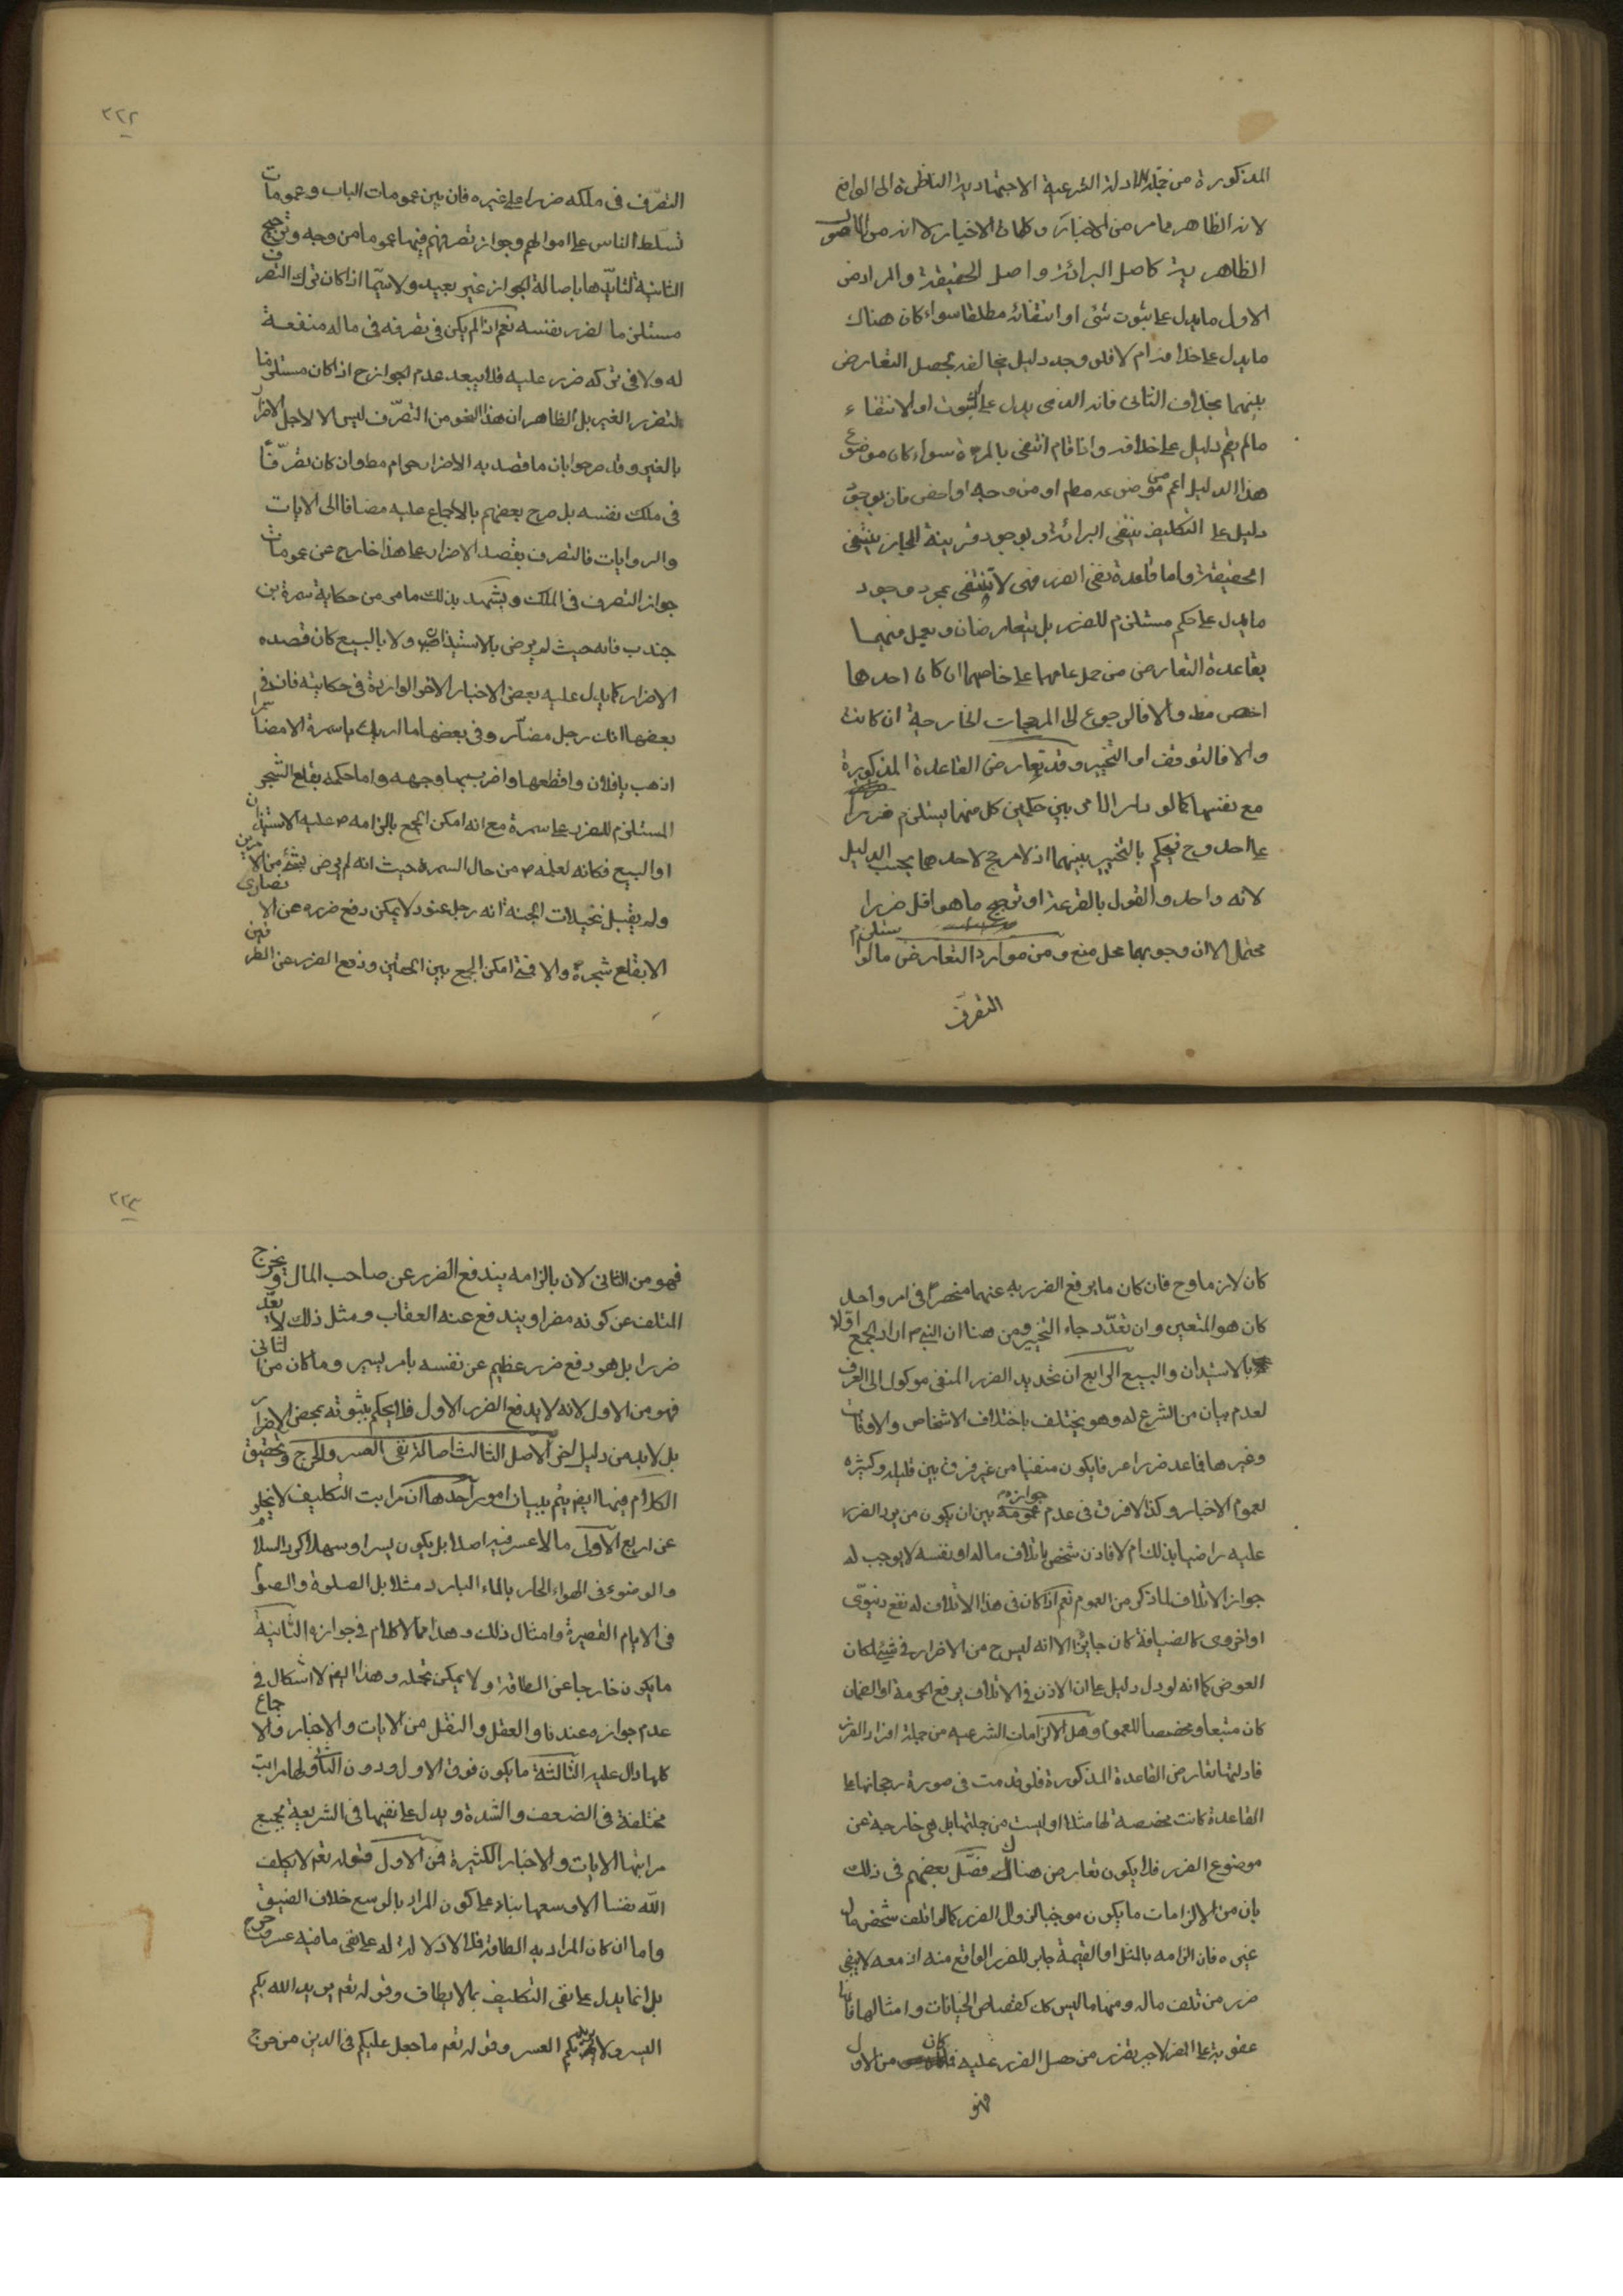 المذكورة من جملة الادلة الشرعية الاجتهادية الناظرة الى الواقع
لانه الظاهر مما مر من الاخبار وكلمات الاخيار لا انه من الاصول
الظاهرية كاصل البرائة واصل الحقيقة والمراد من
الاول ما يدل على ثبوت شئ او انتفائه مطلقا سواء كان هناك
ما يدل على خلافه ام لا فلو وجد دليل مخالف يحصل التعارض
بينهما بخلاف الثانى فانه الذى يدل على الثبوت او الانتفاء
ما لم يقم دليل على خلافه واذا قام انتفى بالمرة سواء كان موضوع
هذا الدليل اعم من موضوعه مطم او من وجه او اخص فان بوجود
دليل على التكليف ينتفى البرائة وبوجود قرينة المجاز ينتفى
الحقيقة واما قاعدة نفى الضرر فهى لا تنتفى بمجرد وجود
ما يدل على حكم مستلزم للضرر بل يتعارضان ويعمل فيهما
بقاعدة التعارض من حمل عامهما على خاصهما ان كان احدهما
اخص مطم والا فالرجوع الى المرجحات الخارجة ان كانت
والا فالتوقف او التخيير وقد تعارض القاعدة المذكورة
مع نفسها كما لو دار الامر بين حكمين كل منهما يستلزم ضررا
على احد وح فيحكم بالتخيير بينهما اذ لا مرجح لاحدهما بحسب الدليل
لانه واحد والقول بالقرعة او ترجيح ما هو اقل ضررا
محتمل الا ان وجوبهما محل منع ومن موارد التعارض ما لو استلزم
التصرف
٢٢٢
التصرّف فى ملكه ضررا على غيره فان بين عمومات الباب وعمومات
تسلط الناس على اموالهم وجواز تصرفهم فيها عموما من وجه وترجيح
الثانية لتأيدها باصالة الجواز غير بعيد ولا سيّما اذا كان ترك التصرف
مستلزما لضرر نفسه نعم اذا لم يكن فى تصرفه فى ماله منفعة
له ولا فى تركه ضرر عليه فلا يبعد عدم الجواز ح اذا كان مستلزما
لتضرر الغير بل الظاهر ان هذا النحو من التصرّف ليس الا لاجل الاضرار
بالغير وقد صرحوا بان ما قصد به الاضرار حرام مطم وان كان تصرّفاً
فى ملك نفسه بل صرح بعضهم بالاجماع عليه مضافا الى الايات
والروايات فالتصرف بقصد الاضرار على هذا خارج عن عمومات
جواز التصرف فى الملك ويشهد بذلك ما مر من حكاية سمرة بن
جندب فانه حيث لم يرض بالاستيذان ولا بالبيع كان قصده
الاضرار كما يدل عليه بعض الاخبار الاخر الواردة فى حكايته فان فى
بعضها انك رجل مضآر وفى بعضها ما اريك يا سمرة الا مضآرا
اذهب يا فلان واقطعها واضرب بها وجهه واما حكمه بقلع الشجر
المستلزم للضرر على سمرة مع انه امكن الجمع بالزامه ص عليه الاستيذان
او البيع فكانه لعلمه ص من حال السمرة حيث انه لم يرض بشئ من الامرين
ولم يقبل نخيلات الجنة انه رجل عنود لا يمكن دفع ضرره عن الانصارى
الا بقلع شجرة والا فمتى امكن الجمع بين الحقين ودفع الضرر عن الطرفين
كان لازما وح فان كان ما يرفع الضرر به عنهما منحصرا فى امر واحد
كان هو المتعين وان تعدّد جاء التخيير ومن هنا ان النبى ص اراد الجمع اوّلا
بالاستيذان والبيع الرابع ان تحديد الضرر المنفى موكول الى العرف
لعدم بيان من الشرع له وهو يختلف باختلاف الاشخاص والاوقات
وغيرها فما عد ضررا عرفا يكون منفيا من غير فرق بين قليله وكثيره
لعموم الاخبار وكذا لا فرق فى عدم جوازه بين ان يكون من يرد الضرر
عليه راضيا بذلك ام لا فاذن شخص باتلاف ماله او نفسه لا يوجب له
جواز الاتلاف لما ذكر من العموم نعم اذا كان فى هذا الاتلاف له نفع دنيوّى
او اخروى كالضيافة كان جايزا الا انه ليس ح من الاضرار فى شئ لمكان
العوض كما انه لو دل دليل على ان الاذن فى الاتلاف يرفع الحرمة او الضمان
كان متبعا ومخصصا للعموم وهل الالزامات الشرعيه من جملة افراد الضرر
فادلتها تعارض القاعدة المذكورة فلو قدمت فى صورة رجحانها على
القاعدة كانت مخصصة لها مثلا او ليست من جملتها بل هى خارجة عن
موضوع الضرر فلا يكون تعارض هناك فصّل بعضهم فى ذلك
بان من الالزامات ما يكون موجبا لزوال الضرر كما لو اتلف شخص مال
غيره فان الزامه بالمثل او القيمة جابر للضرر الواقع منه اذ معه لا يبقى
ضرر من تلف ماله ومنها ما ليس كك كقصاص الجنايات وامثالها فانها
عقوبة على الضرر لا جبر لضرر من حصل الضرر عليه فما كان من الاول
فهو
٢٢٣
فهو من الثانى لان بالزامه يندفع الضرر عن صاحب المال ويخرج
المتلف عن كونه مضرا ويندفع عنه العقاب ومثل ذلك لا يعّد
ضررا بل هو دفع ضرر عظيم عن نفسه بامر يسير وما كان من الثانى
فهو من الاول لانه لا يدفع الضرر الاول فلا يحكم بثبوته بمحض الاضرار
بل لا بد من دليل اخر الاصل الثالث اصالة نفى العسر والحرج وتحقيق
الكلام فيها ايضم يتم ببيان امور احدها ان مراتب التكليف لا يخلو
عن اربع الاولى ما لا عسر فيه اصلا بل يكون يسرا وسهلا كرد السلام
والوضوء فى الهواء الحار بالماء البارد مثلا بل الصلوة والصوم
فى الايام القصيرة وامثال ذلك وهذا مما لا كلام فى جوازه الثانية
ما يكون خارجا عن الطاقة ولا يمكن تحمله وهذا ايضم لا اشكال فى
عدم جوازه عندنا والعقل والنقل من الايات والاخبار والاجماع
كلها دال عليه الثالثة ما يكون فوق الاول ودون الثانى ولها مراتب
مختلفة فى الضعف والشدة ويدل على نفيها فى الشريعة بجميع
مراتبها الايات والاخبار الكثيرة فمن الاول قوله تعم لا يكلف
الله نفسا الا وسعها بناء على كون المراد بالوسع خلاف الضيق
واما ان كان المراد به الطاقة فلا دلالة له على نفى ما فيه عسر وحرج
بل انما يدل على نفى التكليف بما لا يطاق وقوله تعم يريد الله بكم
اليسر ولا يريد بكم العسر وقوله تعم ما جعل عليكم فى الدين من حرج